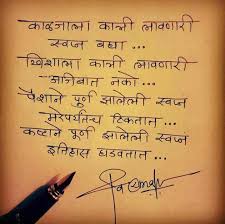 काळजाला कात्री लावणारी
स्वप्न बघा ...
खिशाला कात्री लावणारी
अजिबात नको ...
पैशाने पुर्ण झालेली स्वप्न
मरेपर्यंतच टिकतात ...
कष्टाने पुर्ण झालेली स्वप्न
इतिहास घडवतात ...